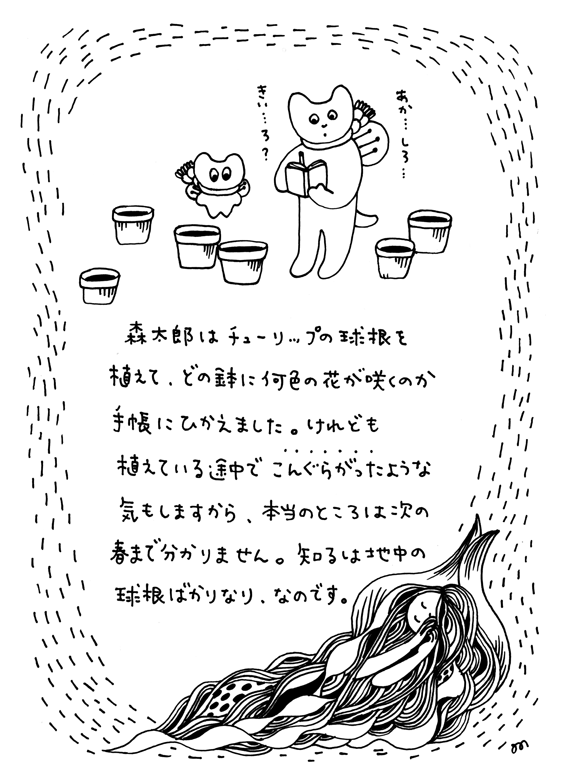 あか…しろ…
きい…ろ?
森太郎はチューリップの球根を
植えて、どの鉢に何色の花が咲くのか
手帳にひかえました。けれども
植えている途中でこんぐらがったような
気もしますから、本当のところは次の
春まで分かりません。知るは地中の
球根ばかりなり、なのです。